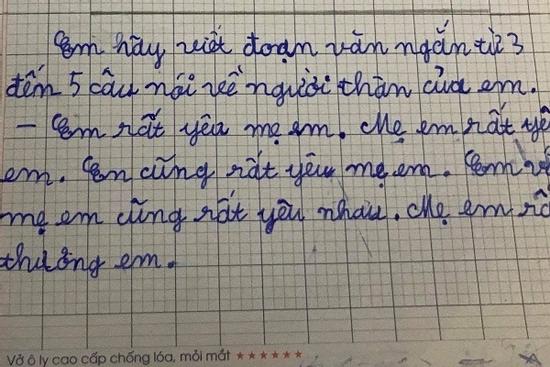 Em hãy viết đoạn văn ngắn từ 3
đến 5 câu nói về người thân của em.
- Em rất yêu mẹ em. Mẹ em rất yê
em. Em cũng rất yêu mẹ em. Em và
mẹ em cũng rất yêu nhau. Mẹ em rấ
thương em.
Vở ô ly cao cấp chống lóa, mỏi mắt ★★★★★★